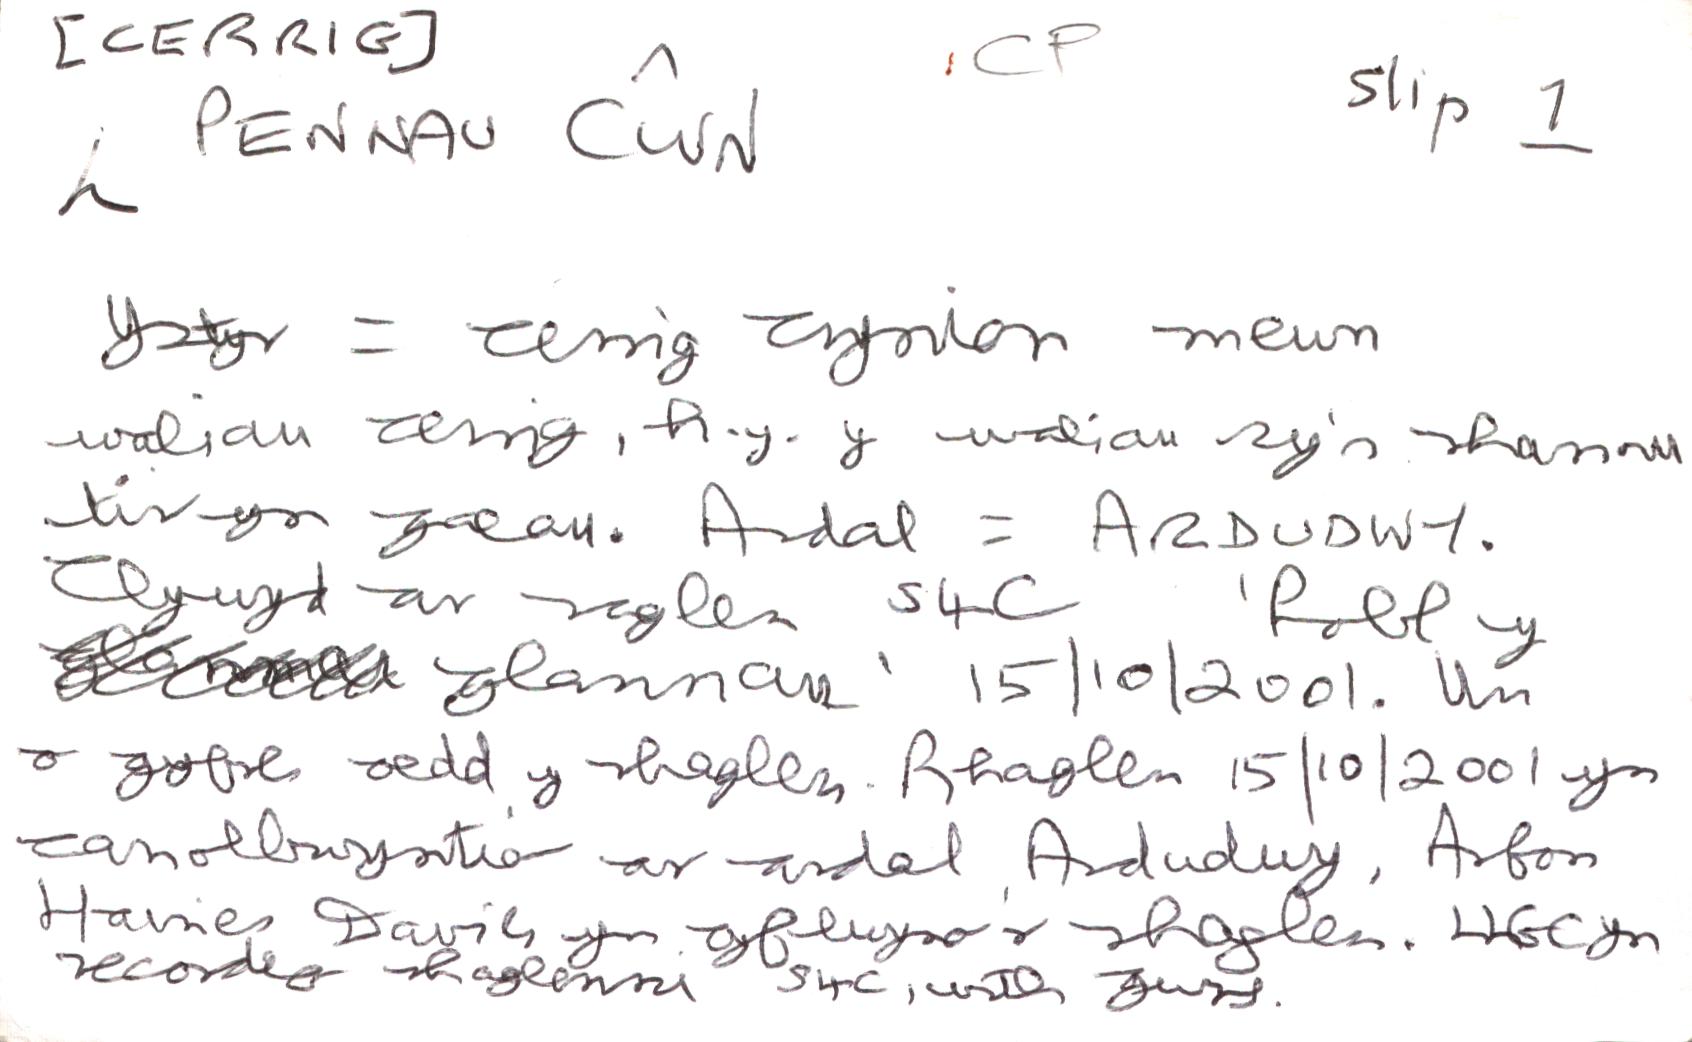 [CERRIG] CP
PENNAU CŴN slip 1
Ystyr = cerrig crynion mewn
waliau cerrig, h.y. y waliau sy'n rhannu
tir yn gaeau. Ardal = ARDUDWY.
Clywyd ar raglen S4C 'Pobl y
glannau' 15/10/2001. Un
o gyfres oedd y rhaglen. Rhaglen 15/10/2001 yn
canolbwyntio ar ardal Ardudwy, Arfon
Haines Davies yn cyflwyno'r rhaglen. LlGC yn
recordio rhaglenni S4C, wrth gwrs.